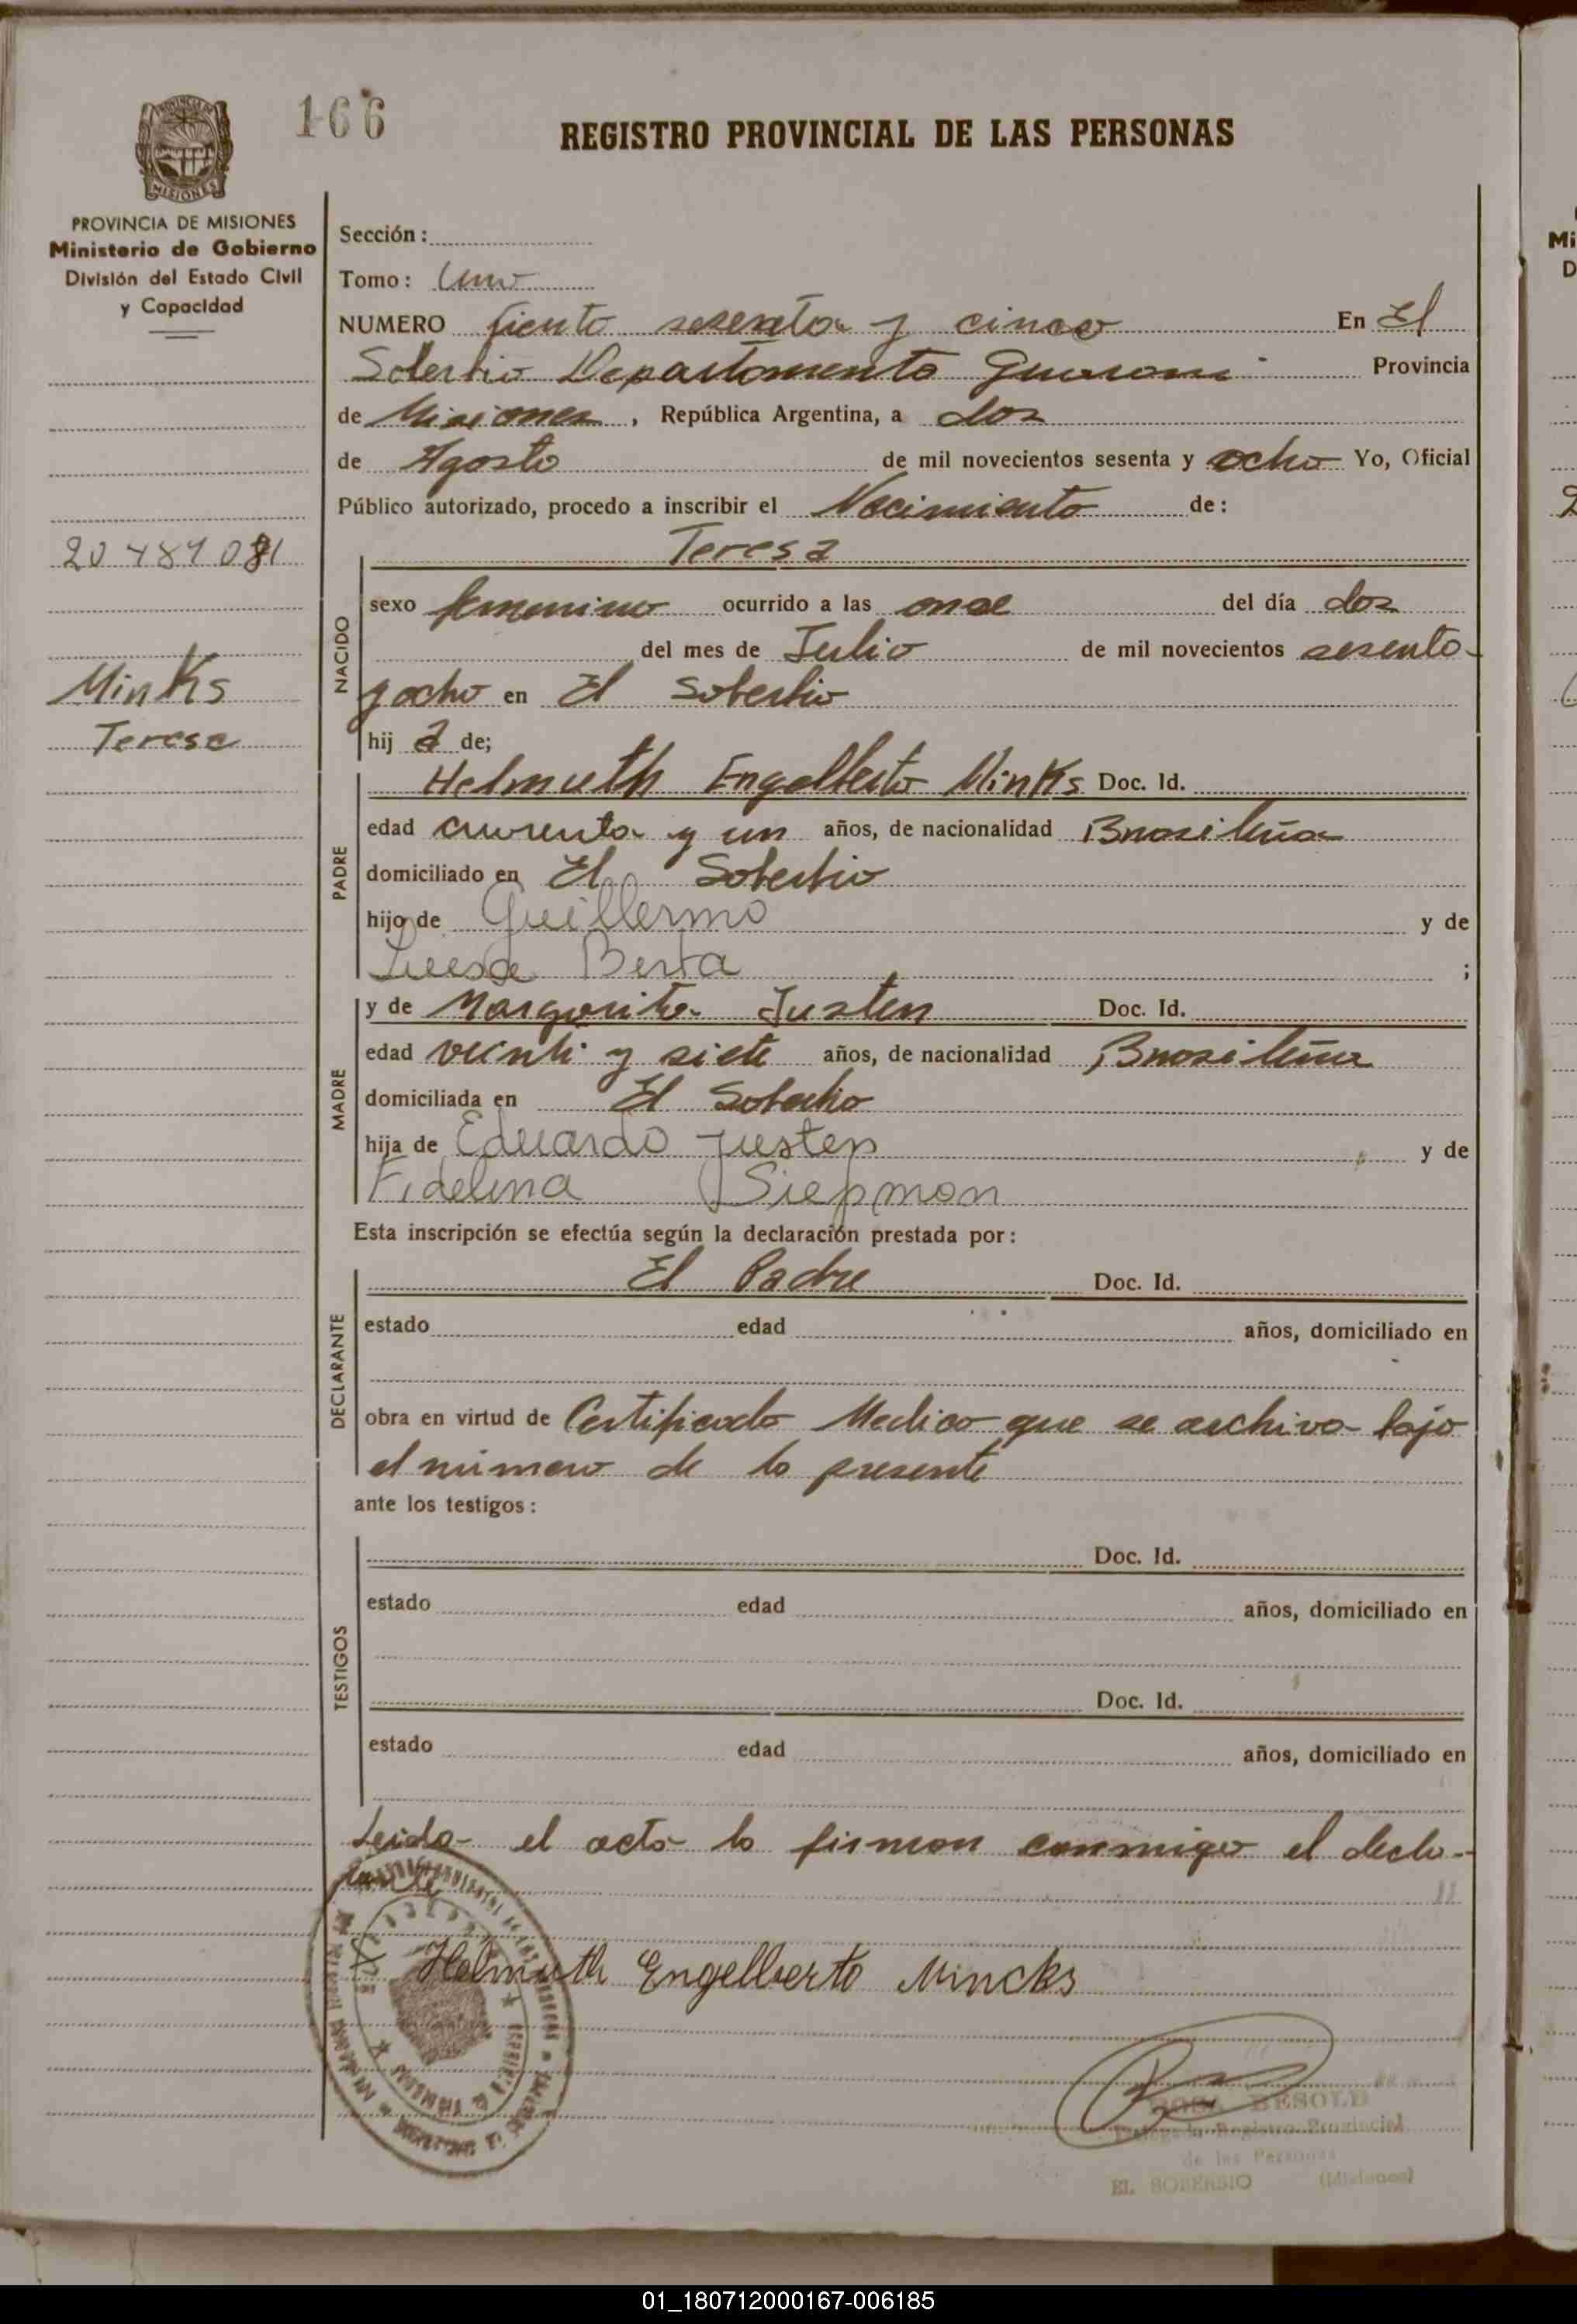 166
REGISTRO PROVINCIAL DE LAS PERSONAS
MISIONES
PROVINCIA DE MISIONES
Ministerio de Gobierno
División del Estado Civil
y Capacidad
Sección:
Tomo: Uno
NUMERO Ciento sesenta y cinco En El
Soberbio Departamento Guarani Provincia
de Misiones, República Argentina, a dos
de Agosto de mil novecientos sesenta y ocho Yo, Oficial
Público autorizado, procedo a inscribir el Nacimiento de:
Teresa
Minks
Teresa
NACIDO
sexo femenino ocurrido a las once del día dos
del mes de Julio de mil novecientos sesenta
y ocho en El Soberbio
hija de;
PADRE
Helmuth Engelberto Minks Doc. Id.
edad cuarenta y un años, de nacionalidad Brasileña
domiciliado en El Soberbio
hijo de Guillermo y de
Luisa Berta ;
MADRE
y de Margarita Justen Doc. Id.
edad veinti y siete años, de nacionalidad Brasileña
domiciliada en El Soberbio
hija de Eduardo Justen y de
Fidelina Siepmon
Esta inscripción se efectúa según la declaración prestada por:
DECLARANTE
El Padre Doc. Id.
estado edad años, domiciliado en
obra en virtud de Certificado Medico que se archiva bajo
el número de la presente
ante los testigos:
TESTIGOS
Doc. Id.
estado edad años, domiciliado en
Doc. Id.
estado edad años, domiciliado en
Leida el acta la firman conmigo el decla-
rante
Helmuth Engelberto Mincks
BESOLD
Registro Provincial
de las Personas
EL SOBERBIO (Misiones)
01_180712000167-006185